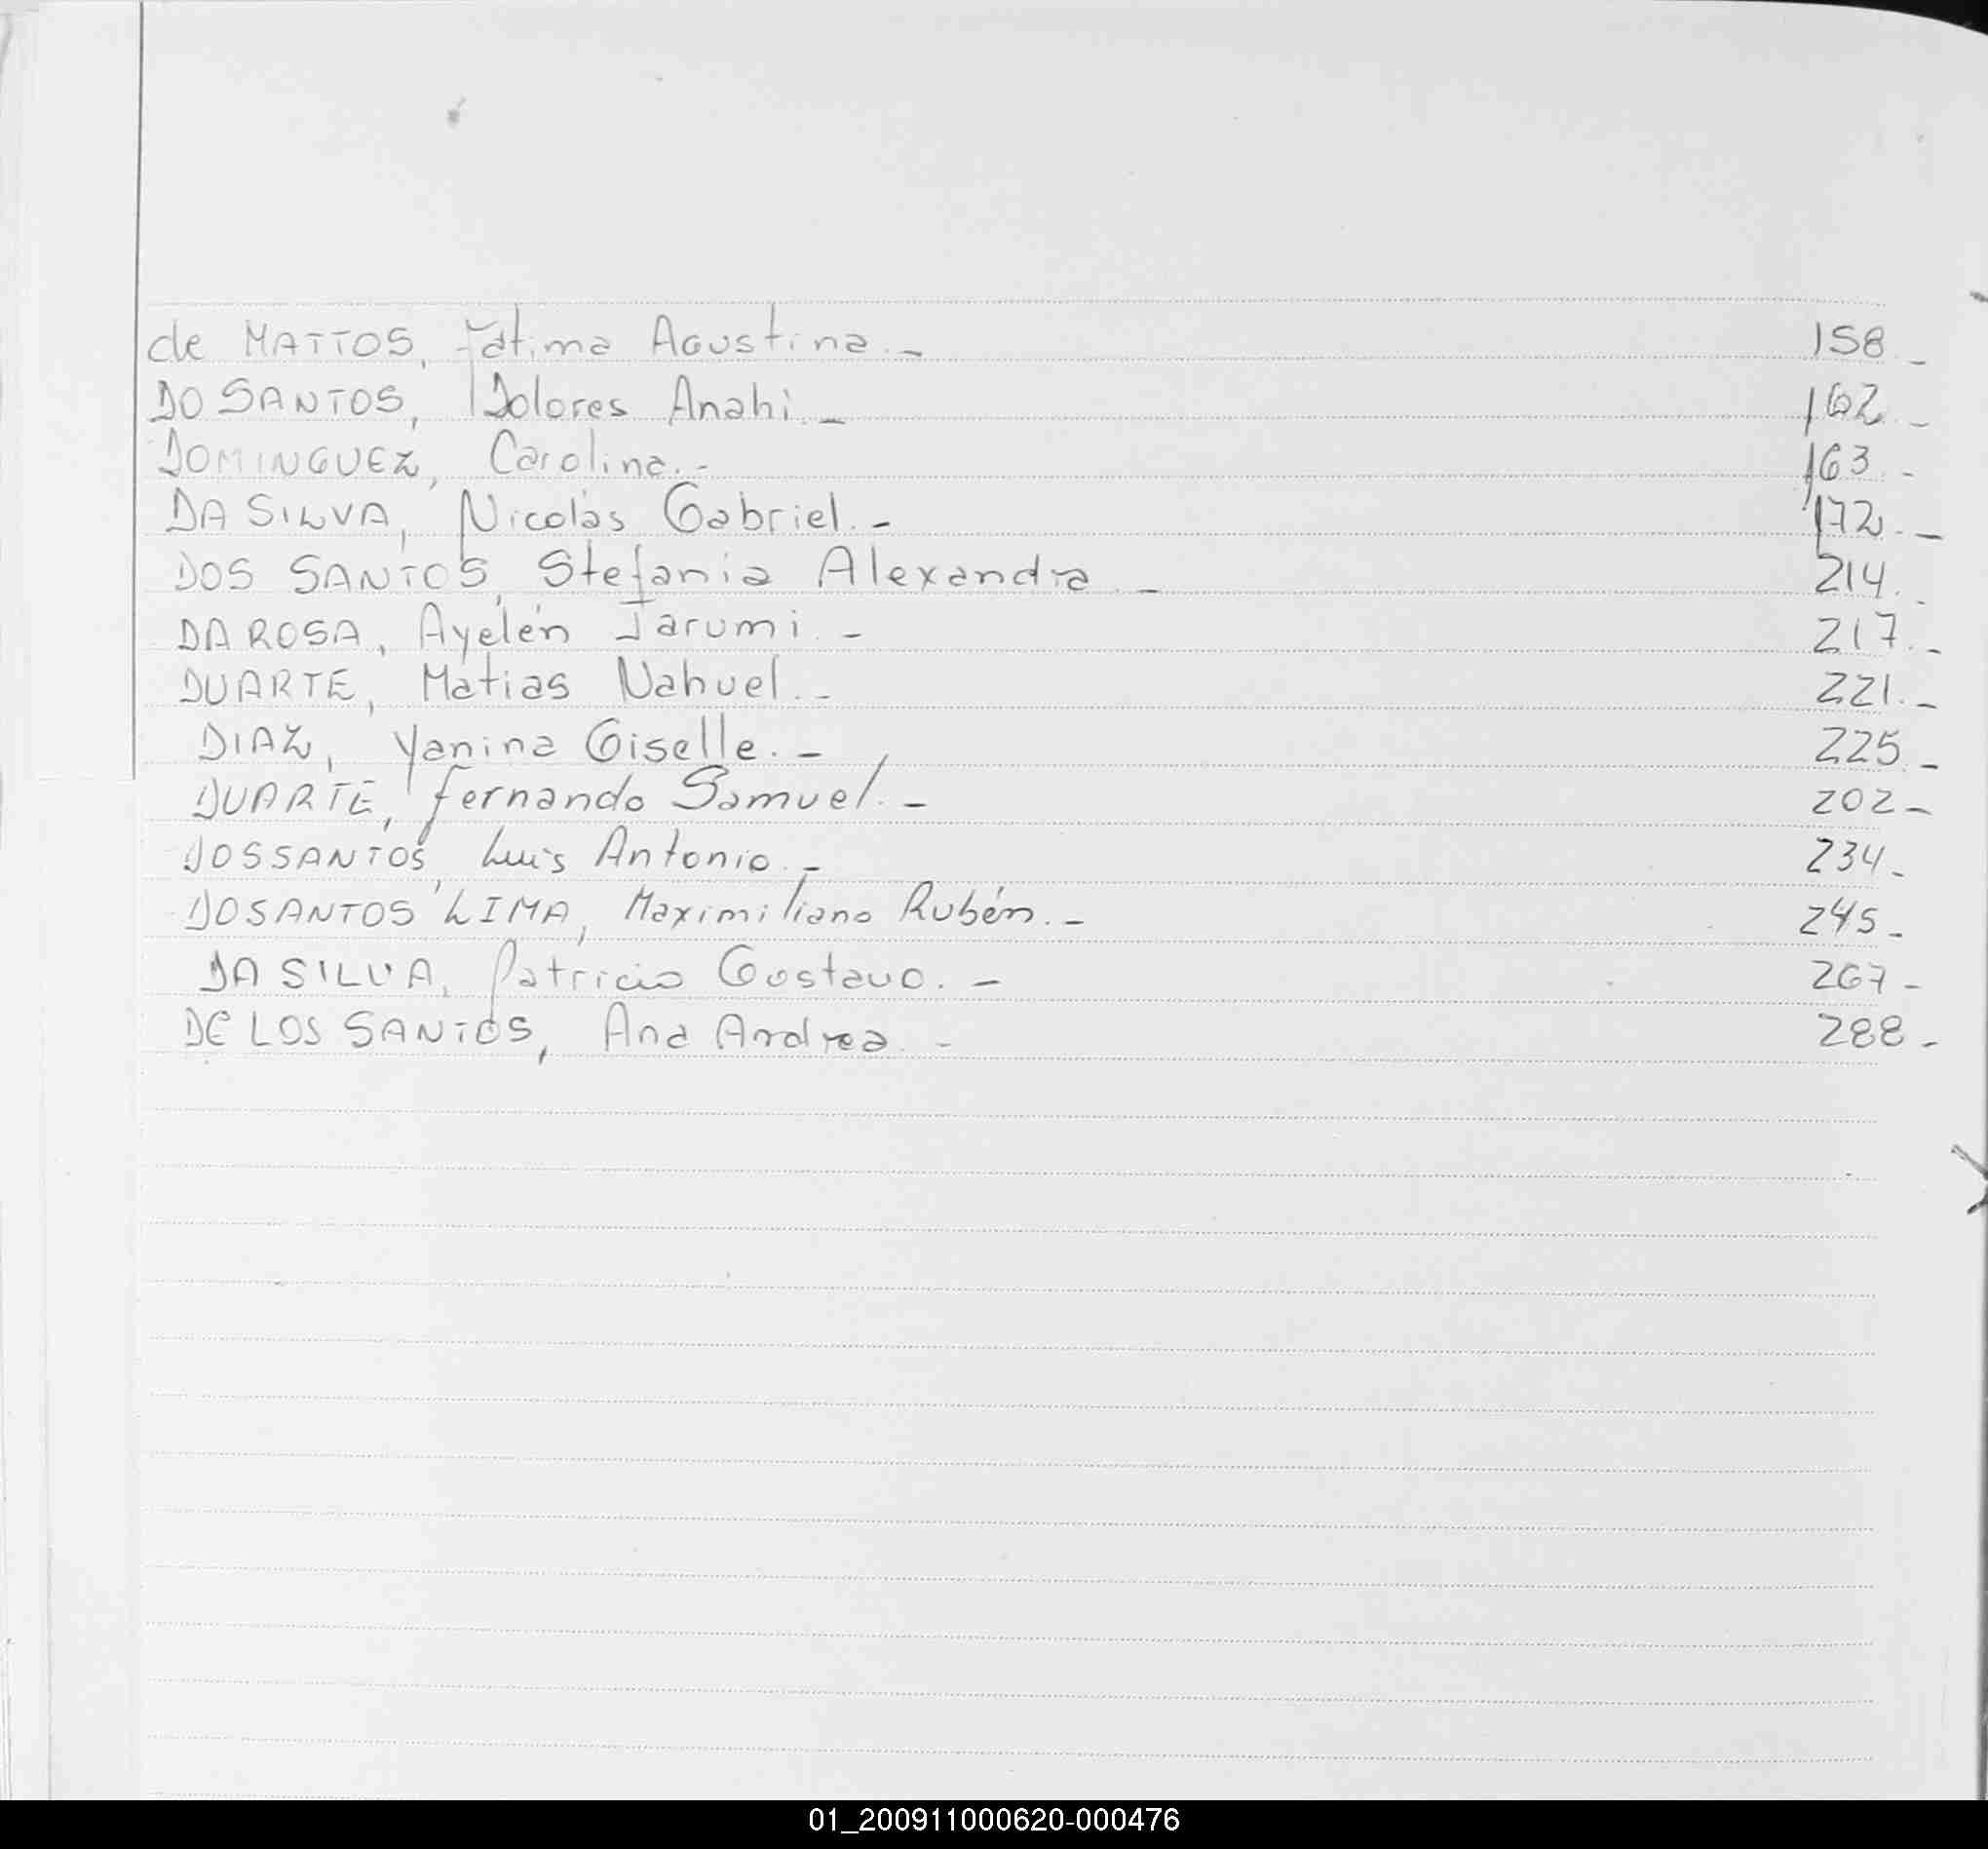 de MATTOS, Fátima Agustina.- 158-
DO SANTOS, Dolores Anahi.- 162.-
DOMINGUEZ, Carolina.- 163.-
DA SILVA, Nicolás Gabriel.- 172.-
DOS SANTOS, Stefania Alexandra.- 214.-
DA ROSA, Ayelén Jarumi.- 217.-
DUARTE, Matias Nahuel.- 221.-
DIAZ, Yanina Giselle.- 225.-
DUARTE, Fernando Samuel.- 202-
DOSSANTOS, Luis Antonio.- 234-
DOSANTOS LIMA, Maximiliano Rubén.- 245-
DA SILVA, Patricio Gustavo.- 267-
DE LOS SANTOS, Ana Andrea.- 288-
01_200911000620-000476